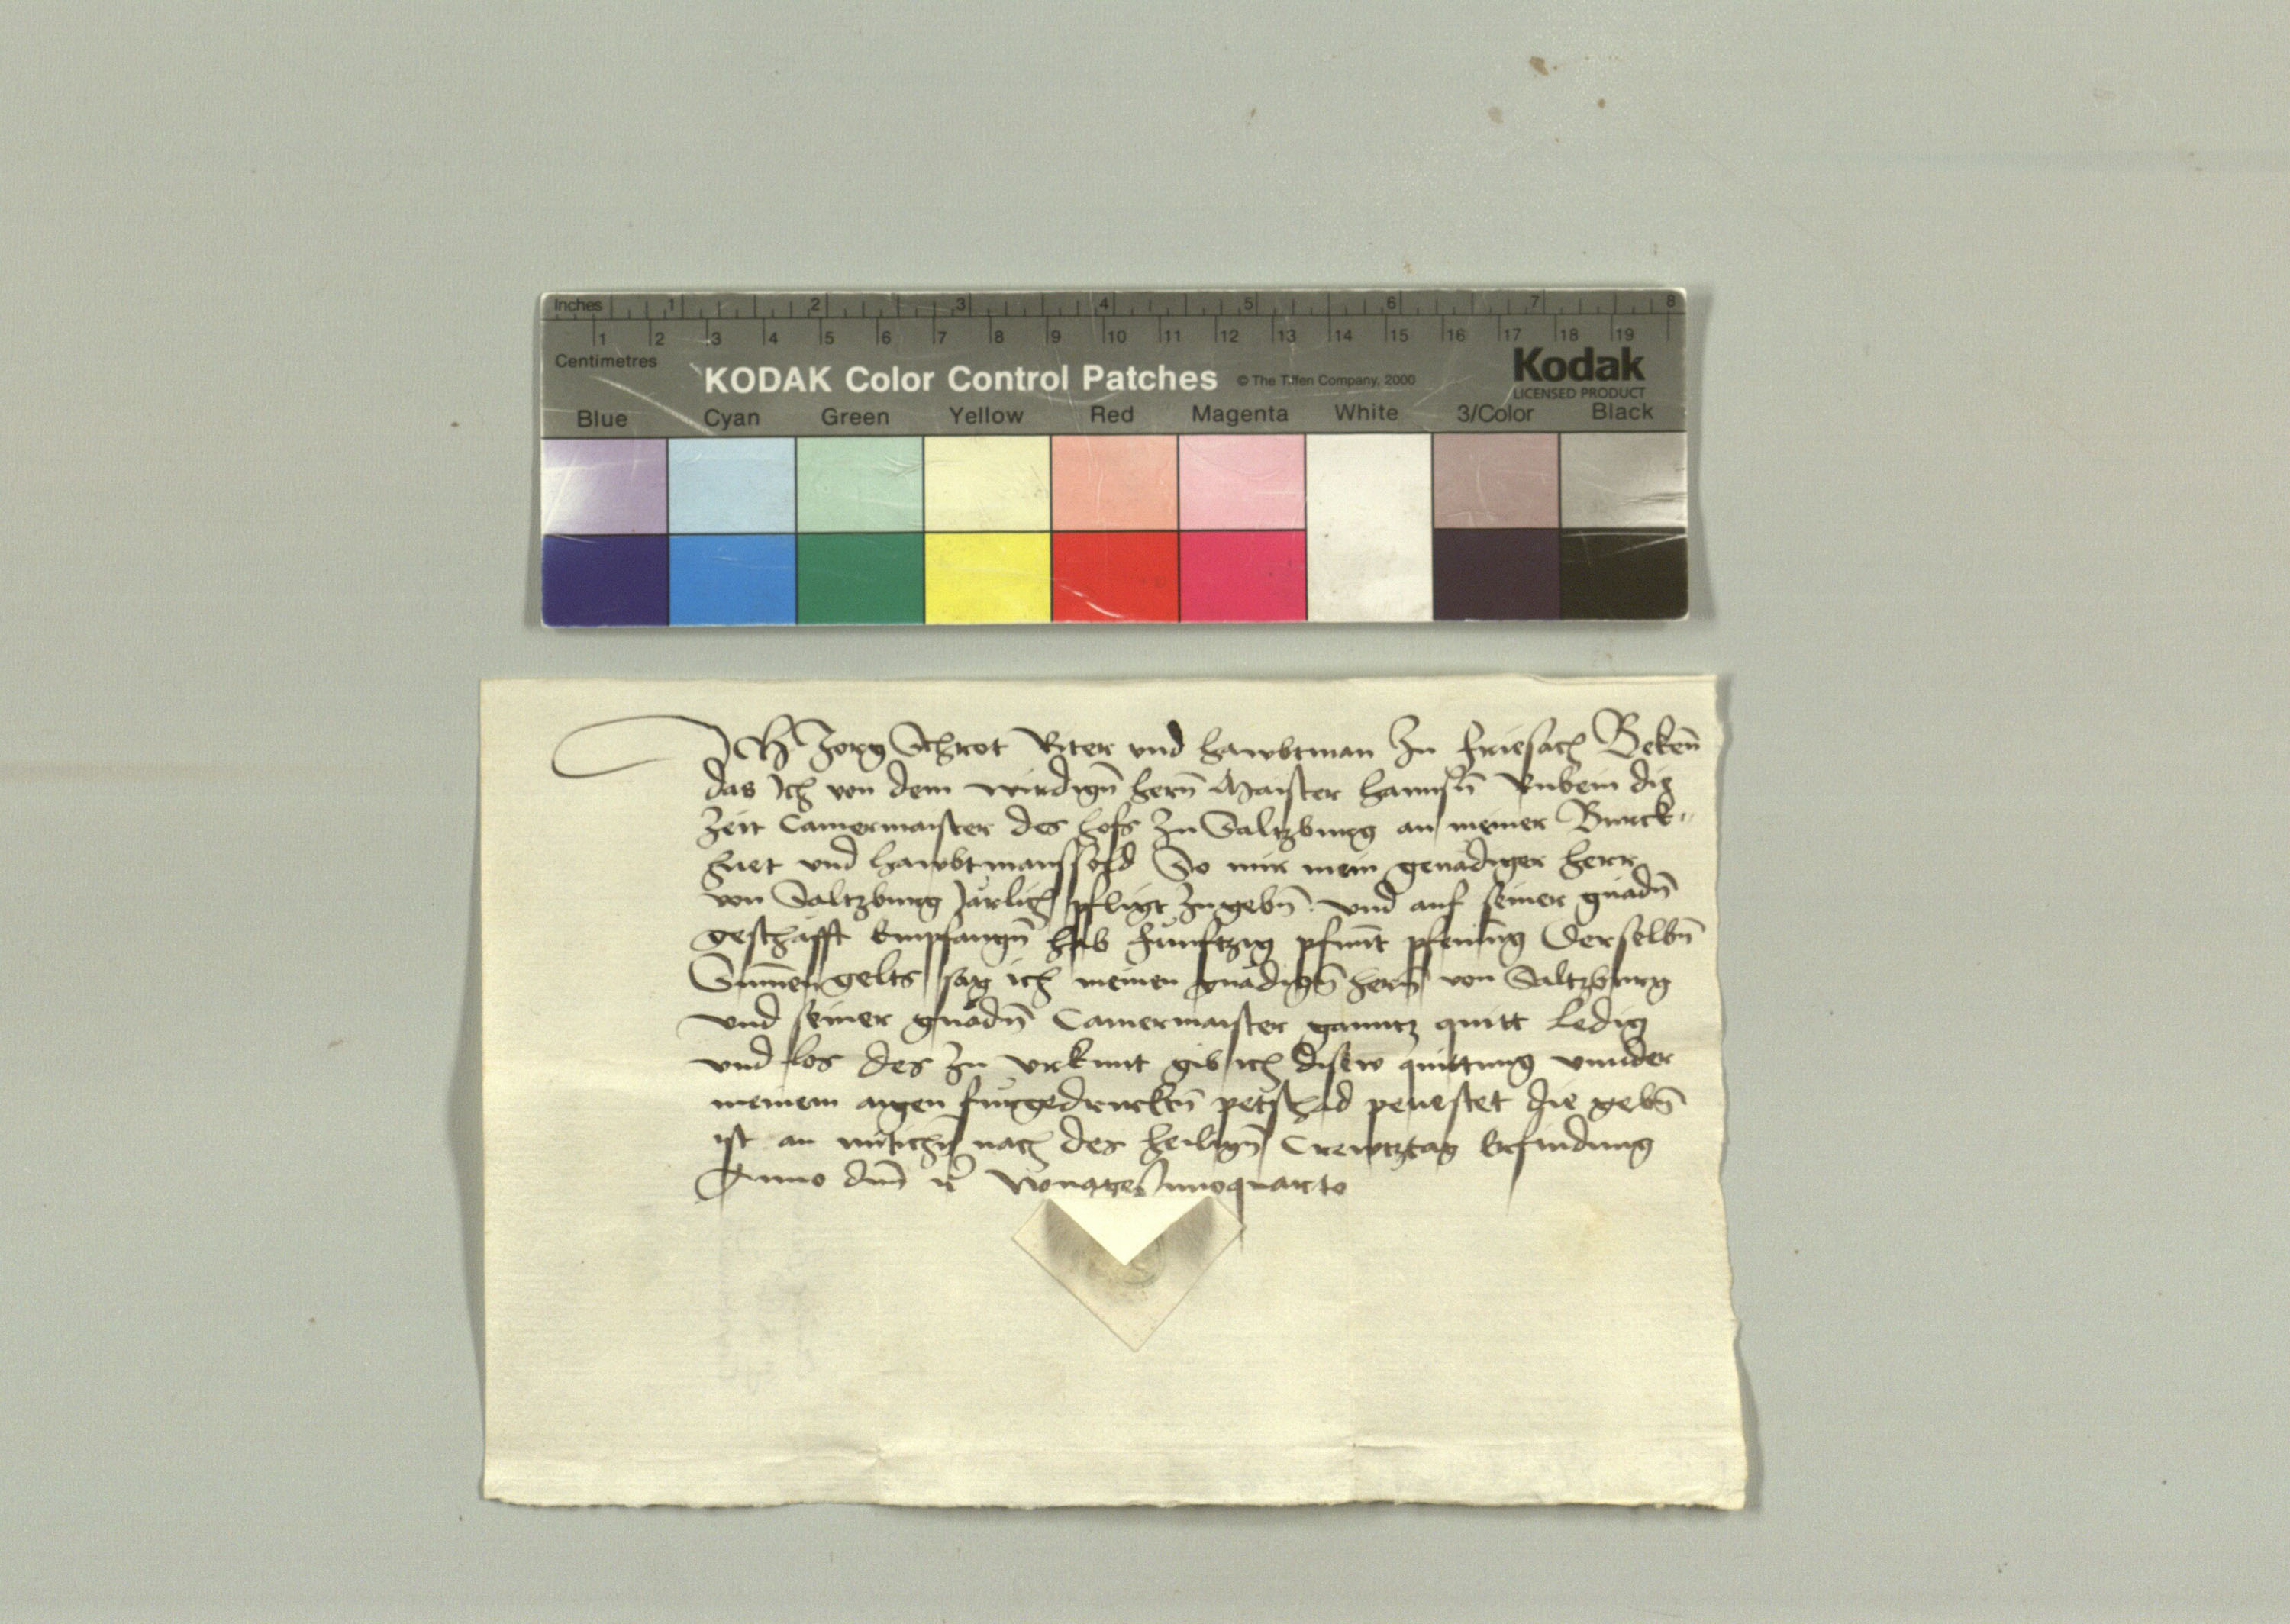 Inches 1 2 3 4 5 6 7 8
1 2 3 4 5 6 7 8 9 10 11 12 13 14 15 16 17 18 19
Centimetres
KODAK Color Control Patches © The Tiffen Company, 2000 Kodak
LICENSED PRODUCT
Blue Cyan Green Yellow Red Magenta White 3/Color Black
Ich Jorg Schrot Riter vnd hawbtman zu friesach Bekeñ
das Ich von dem wirdigñ herñ Maister hannsñ Rubein die
zeit Camermaister des hofs zu Saltzburg an meiner Burck-
huet vnd hawbtmanssold So mir mein genadiger herr
von Saltzburg Järlich pfligt zugebñ. vnd auf seiner gnadñ
geschäfft Empfangñ hab fünftzig pfunt pfening Derselbñ
Sumen gelts sag ich meinen gnädigñ herñ von Saltzburg
vnd seiner gnadñ Camermaister ganntz quitt ledig
vnd los des zu vrkunt gib ich disew quittung vnnder
meinem aigen fürgedrucktñ petschad peuestet die gebñ
ist an mitichñ nach des heiligñ Crewtztag Erfindung
Anno dm̃ rc Nonagesimoquarto